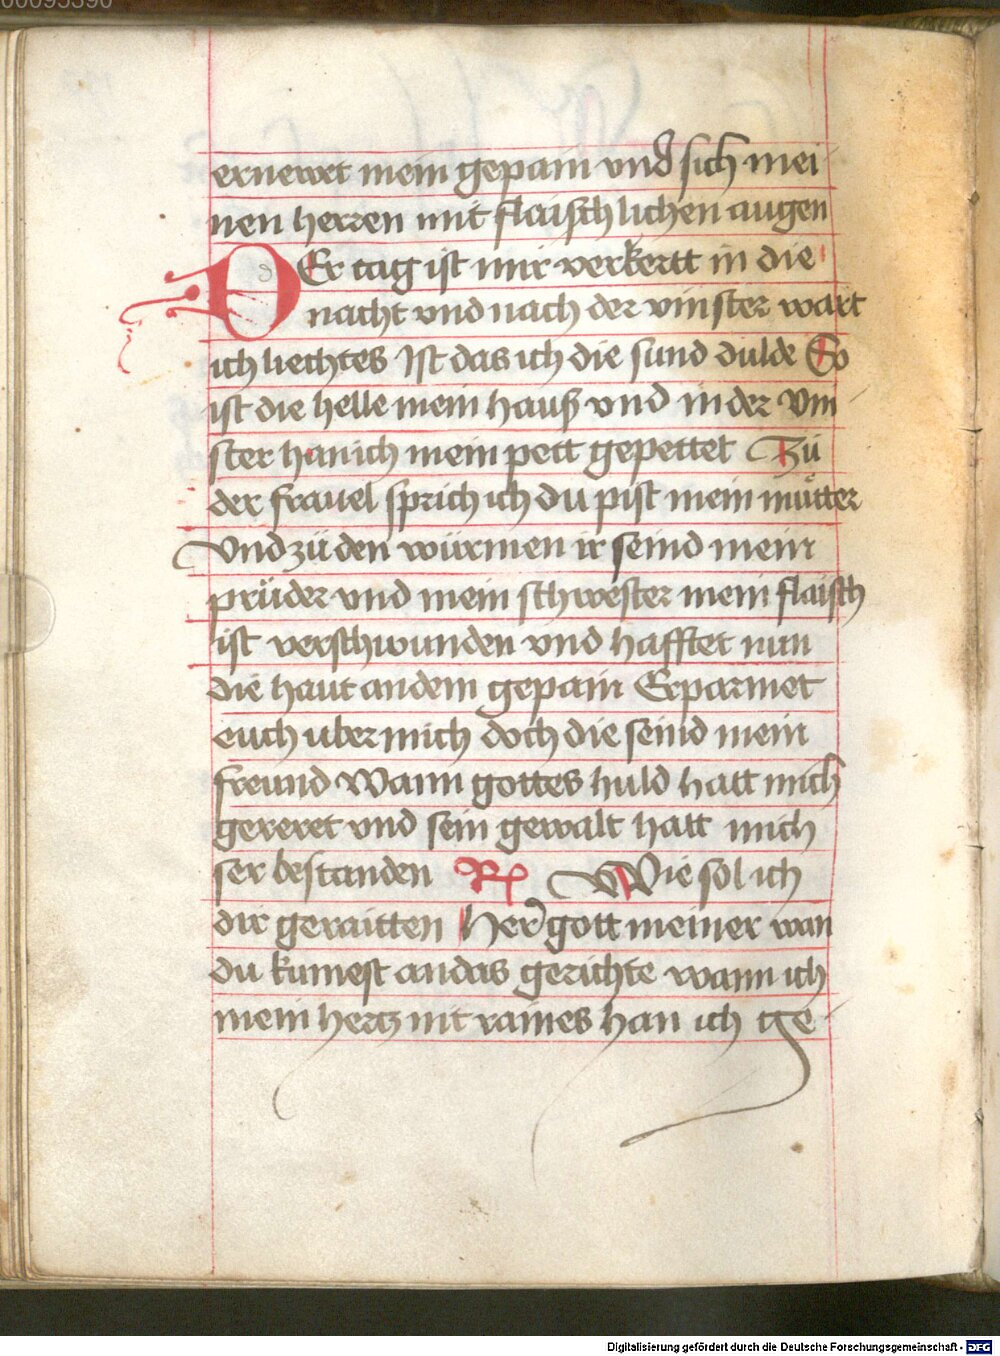 00095390
ernewet mein gepain vnd sich mei
nen herren mit flaischlichen augen
DEr tag ist mir verkertt in die
nacht vnd nach der vinster wart
ich liechtes Ist das ich die sund dulde So
ist die helle mein hauß vnd in der vin
ster han ich mein pett gepettet Zü
der fravel sprich ich du pist mein mütter
vnd zü den würmen ir seind mein
prüder vnd mein schwester mein flaisch
ist verschwunden vnd hafftet nun
die haut an dem gepain Erparmet
euch uber mich doch die seind mein
freund Wann gottes huld hatt mich
gereret vnd sein gewalt hatt mich
ser bestanden R Wie sol ich
dir geraitten Her gott meiner wan
du kumest an das gerichte wann ich
mein hertz nit raines han ich ge
Digitalisierung gefördert durch die Deutsche Forschungsgemeinschaft - DFG